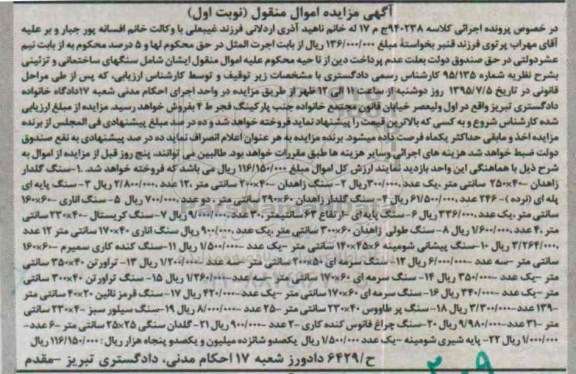 آگهی مزایده اموال منقول (نوبت اول)
در خصوص پرونده اجرائی کلاسه ۹۴۰۲۳۸ج م ۱۷ له خانم ناهید آذری اردلانی فرزند غیبعلی با وکالت خانم افسانه پور جبار و بر علیه
آقای مهراب پرتوی فرزند قنبر بخواستهٔ مبلغ ۱۳۶/۰۰۰/۰۰۰ ریال از بابت اجرت المثل در حق محکوم لها و ۵ درصد محکوم به از بابت نیم
عشر دولتی در حق صندوق دولت بعلت عدم پرداخت دین از ناحیه محکوم علیه اموال منقول ایشان شامل سنگهای ساختمانی و تزئینی
بشرح نظریه شماره ۹۵/۱۳۵ کارشناس رسمی دادگستری با مشخصات زیر توقیف و توسط کارشناس ارزیابی، که پس از طی مراحل
قانونی در تاریخ ۱۳۹۵/۷/۵ روز دوشنبه از ساعت ۱۱ الی ۱۲ ظهر از طریق مزایده در واحد اجرای احکام مدنی شعبه ۱۷ دادگاه خانواده
دادگستری تبریز واقع در اول ولیعصر خیابان قانون مجتمع خانواده جنب پارکینگ فجر ط ۴ بفروش خواهد رسید. مزایده از مبلغ ارزیابی
شده کارشناس شروع و به کسی که بالاترین قیمت را پیشنهاد نماید فروخته خواهد شد و ده در صد مبلغ پیشنهادی فی المجلس از برنده
مزایده اخذ و مابقی حداکثر یکماه فرصت داده میشود. برنده مزایده به هر عنوان اعلام انصراف نماید ده در صد پیشنهادی به نفع صندوق
دولت ضبط خواهد شد هزینه های اجرائی و سایر هزینه ها طبق مقررات خواهد بود. طالبین می توانند، پنج روز قبل از مزایده از اموال به
شرح ذیل با هماهنگی این واحد بازدید نمایند ارزش کل اموال مبلغ ۱۱۶/۱۵۰/۰۰۰ ریال می باشد که فروخته خواهد شد. ۱- سنگ گلدار
زاهدان ۴۰×۲۵۰ سانتی متر، یک عدد ۳۰۰/۰۰۰ ریال ۲- سنگ زاهدان ۴۰×۲۰۰ سانتی متر، ۱۲ عدد ۲/۸۰۰/۰۰۰ ریال ۳- سنگ پایه ای
پله ای (نرده) - ۲۴۶ عدد ۶۱/۵۰۰/۰۰۰ ریال ۴- سنگ گلدار زاهدان ۶۰×۲۹۰ سانتی متر، دو عدد ۷۰۰/۰۰۰ ریال ۵- سنگ اناری ۶۰×۱۶۰
سانتی متر، یک عدد ۳۳۶/۰۰۰ ریال ۶- سنگ پایه ای -ارتفاع ۶۳ سانتیمتر ۳۰ عدد ۹/۰۰۰/۰۰۰ ریال ۷- سنگ کریستال ۴۰×۲۳۰ سانتی
متر ۴ عدد ۱/۶۰۰/۰۰۰ ریال ۸- سنگ طولی زاهدان ۶۰×۳۰۰ سانتی متر، یک عدد ۹۰۰/۰۰۰ ریال ۹- سنگ اناری ۴۰×۱۷۰ سانتی متر ۱۲ عدد
۳/۲۶۴/۰۰۰ ریال ۱۰- سنگ پیشانی شومینه ۶×۴۵×۱۴۰ سانتی متر –یک عدد –۱/۵۰۰/۰۰۰ ریال ۱۱- سنگ کنده کاری سمیرم –۶۰×۱۶۰
سانتی متر –سه عدد –۶/۰۰۰/۰۰۰ ریال ۱۲- سنگ سرمه ای ۵۰×۲۰۰ سانتی متر –سه عدد ۱/۲۰۰/۰۰۰ ریال ۱۳- تراورتن ۴۰×۳۵۰ سانتی
متر –یک عدد –۳۵۰/۰۰۰ ریال ۱۴- سنگ سرمه ای ۶۰×۱۷۰ سانتی متر –سه عدد –۱/۲۶۰/۰۰۰ ریال ۱۵- سنگ تراورتن ۴۰×۳۰۰ سانتی
متر –یک عدد –۳۴۰/۰۰۰ ریال ۱۶- سنگ سرمه ای ۶۰×۱۷۰ سانتی متر –یک عدد –۴۲۰/۰۰۰ ریال ۱۷- سنگ قرمز نائین ۲۰×۴۰ سانتی متر
–۱۳۹ عدد –۳/۳۰۰/۰۰۰ ریال ۱۸- سنگ پر طاووس ۴۰×۲۳۰ سانتی متر –۲۵ عدد –۸/۰۰۰/۰۰۰ ریال ۱۹- سنگ سیلور سبز –۴۰×۲۳۰ سانتی
متر –۳۱ عدد –۹/۹۸۰/۰۰۰ ریال ۲۰- سنگ چراغ فانوس کنده کاری –۲ عدد –۹۰۰/۰۰۰ ریال ۲۱- گلدان سنگی ۲۵×۲۵ سانتی متر –۶ عدد–
۱/۰۰۰/۰۰۰ ریال ۲۲- پایه شیری شومینه –یک عدد ۱/۵۰۰/۰۰۰ ریال یکصدو شانزده میلیون و یکصدو پنجاه هزار ریال: ۱۱۶/۱۵۰/۰۰۰ ریال
ح/۶۴۲۹ دادورز شعبه ۱۷ احکام مدنی، دادگستری تبریز –مقدم